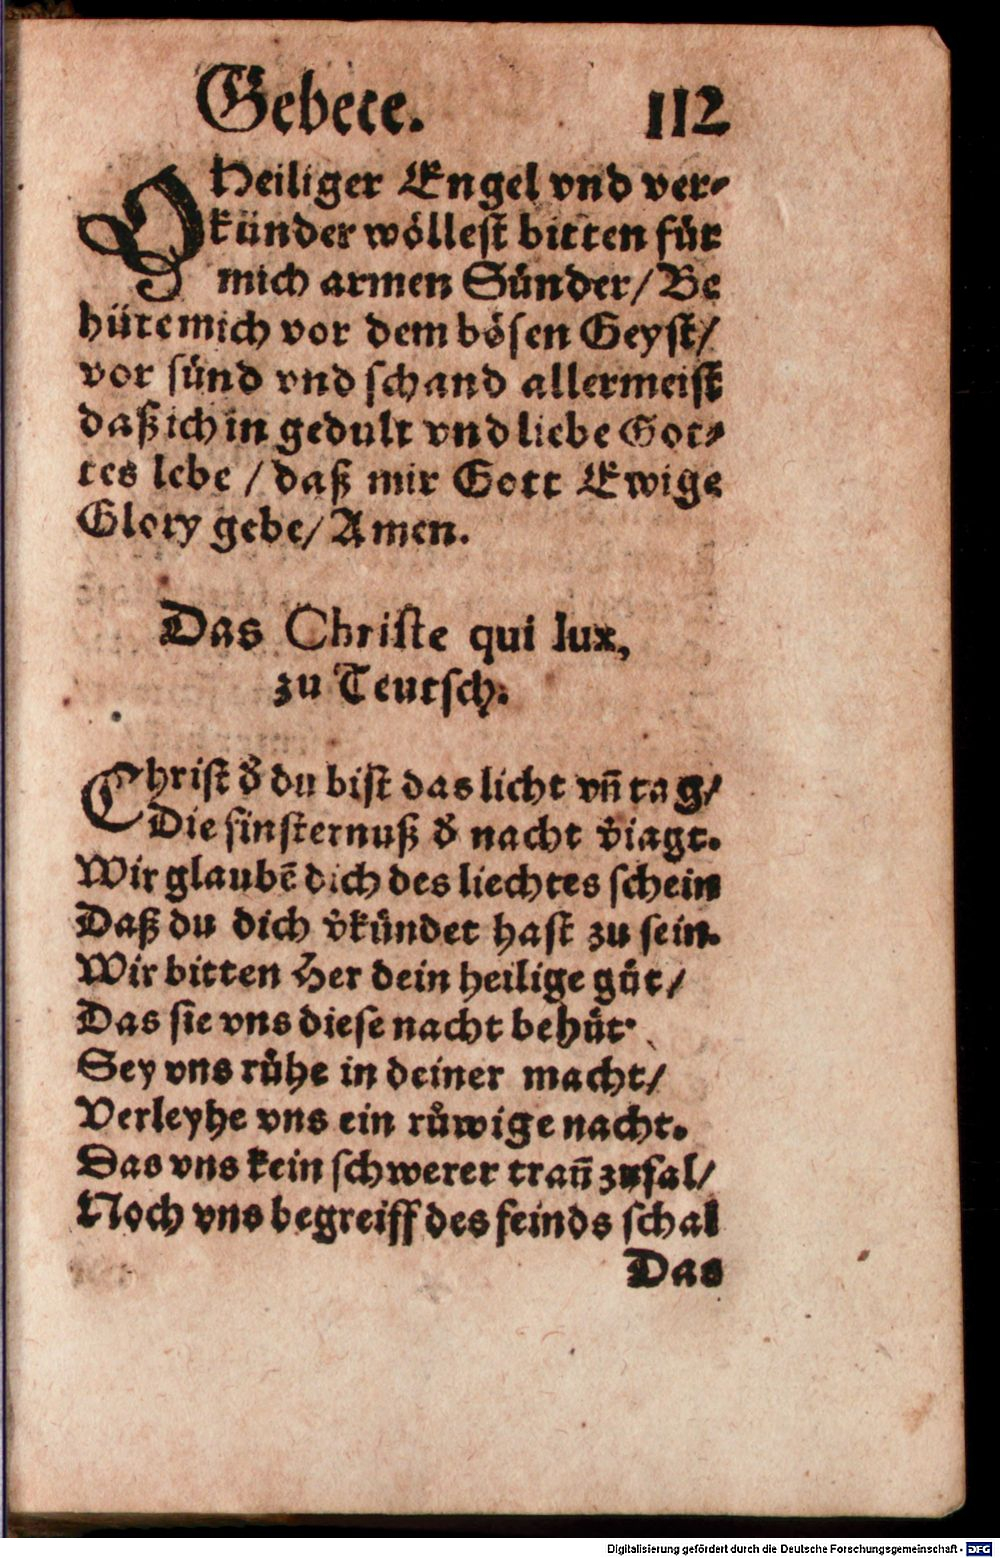 Gebete. 112
O Heiliger Engel vnd ver⸗
künder wöllest bitten für
mich armen Sünder/ Be
hüte mich vor dem bösen Geyst/
vor sünd vnd schand allermeist
daß ich in gedult vnd liebe Got⸗
tes lebe / daß mir Gott Ewige
Glory gebe/ Amen.
Das Christe qui lux,
zu Teutsch.
Christ d̄ du bist das licht vn̄ tag/
Die finsternuß d̄ nacht v̄iagt.
Wir glaubē dich des liechtes schein
Daß du dich v̄kündet hast zu sein.
Wir bitten Her dein heilige güt/
Das sie vns diese nacht behüt.
Sey vns růhe in deiner macht/
Verleyhe vns ein růwige nacht.
Das vns kein schwerer trau̅ zufal/
Noch vns begreiff des feinds schal
Das
Digitalisierung gefördert durch die Deutsche Forschungsgemeinschaft - DFG